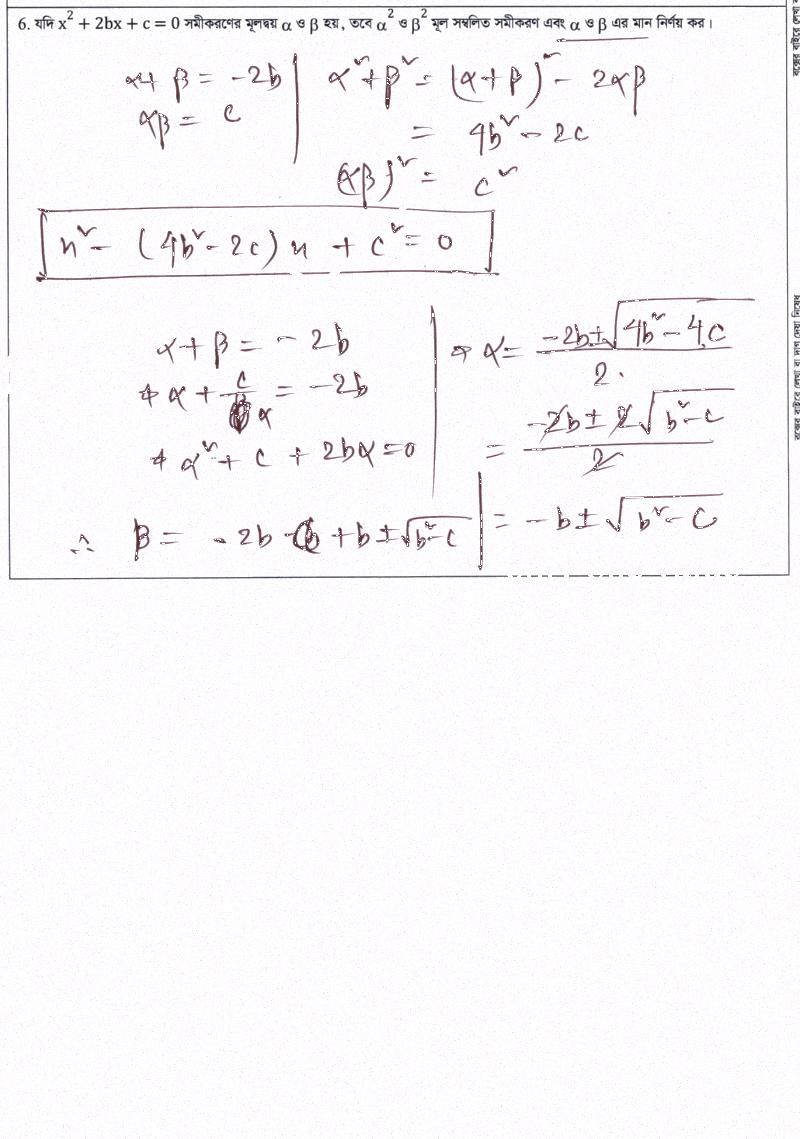 6. যদি x² + 2bx + c = 0 সমীকরণের মূলদ্বয় α ও β হয়, তবে α² ও β² মূল সম্বলিত সমীকরণ এবং α ও β এর মান নির্ণয় কর।
α + β = -2b
αβ = c
α² + β² = (α+β)² - 2αβ
= 4b² - 2c
(αβ)² = c²
x² - (4b² - 2c) x + c² = 0
α + β = -2b
⇒ α + c/α = -2b
⇒ α² + c + 2bα = 0
⇒ α = (-2b ± √(4b² - 4c))/2.
= (-2b ± 2√(b² - c))/2
= -b ± √(b² - c)
∴ β = -2b + b ± √(b² - c)